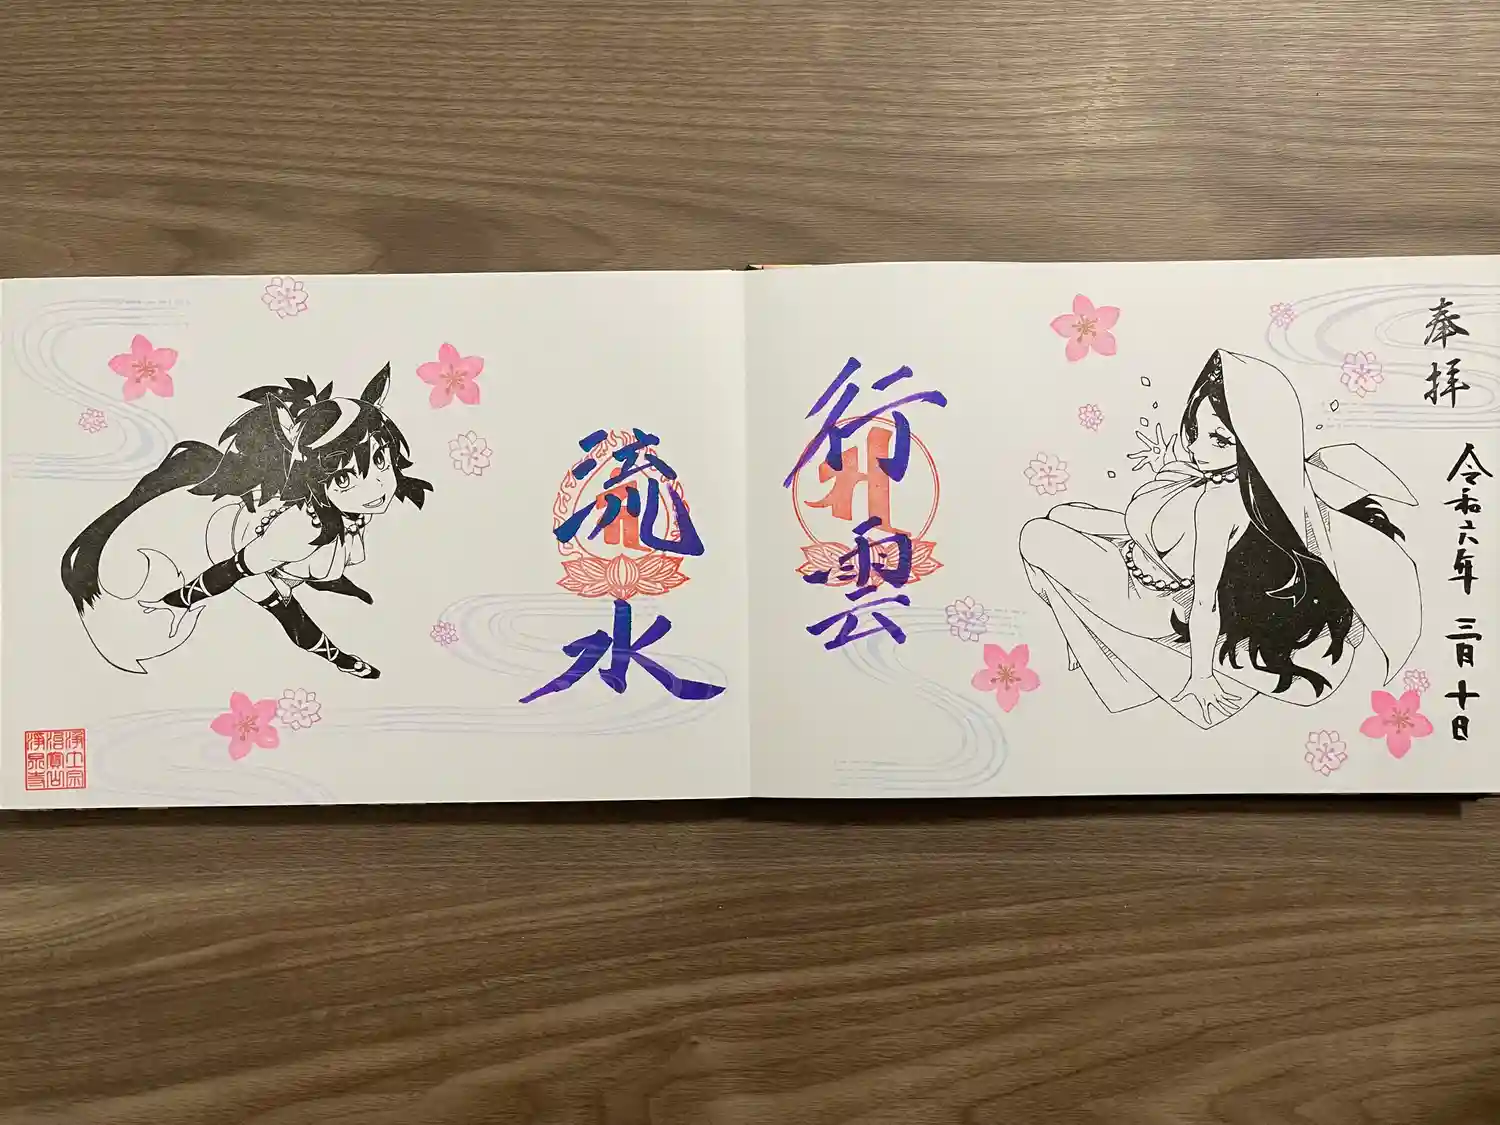 奉拝
令和六年 三月 十日
行雲
流水
浄土宗
治寳山
浄泉寺